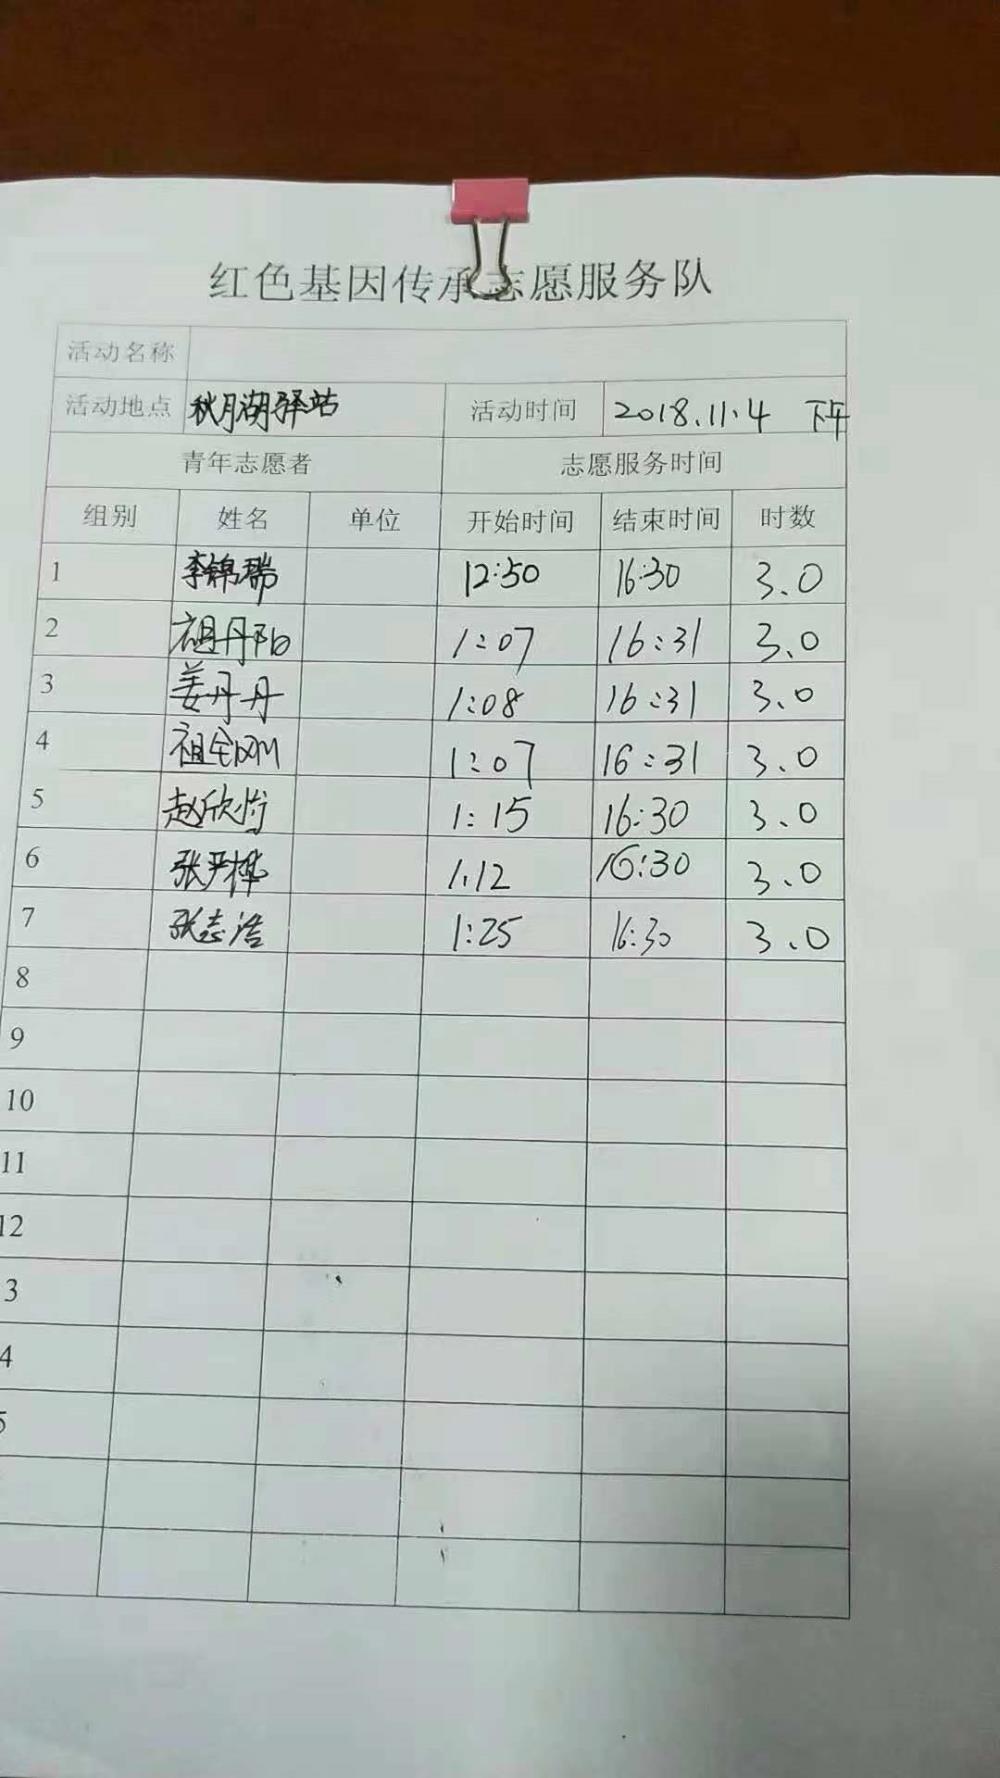 红色基因传承志愿服务队
活动名称
活动地点 秋月湖驿站 活动时间 2018.11.4 下午
青年志愿者 志愿服务时间
组别 姓名 单位 开始时间 结束时间 时数
1 李锦瑞 12:50 16:30 3.0
2 祖丹阳 1:07 16:31 3.0
3 姜丹丹 1:08 16:31 3.0
4 祖 1:07 16:31 3.0
5 赵欣 1:15 16:30 3.0
6 张严桦 1.12 16:30 3.0
7 张志浩 1:25 16:30 3.0
8
9
10
11
12
3
4
5